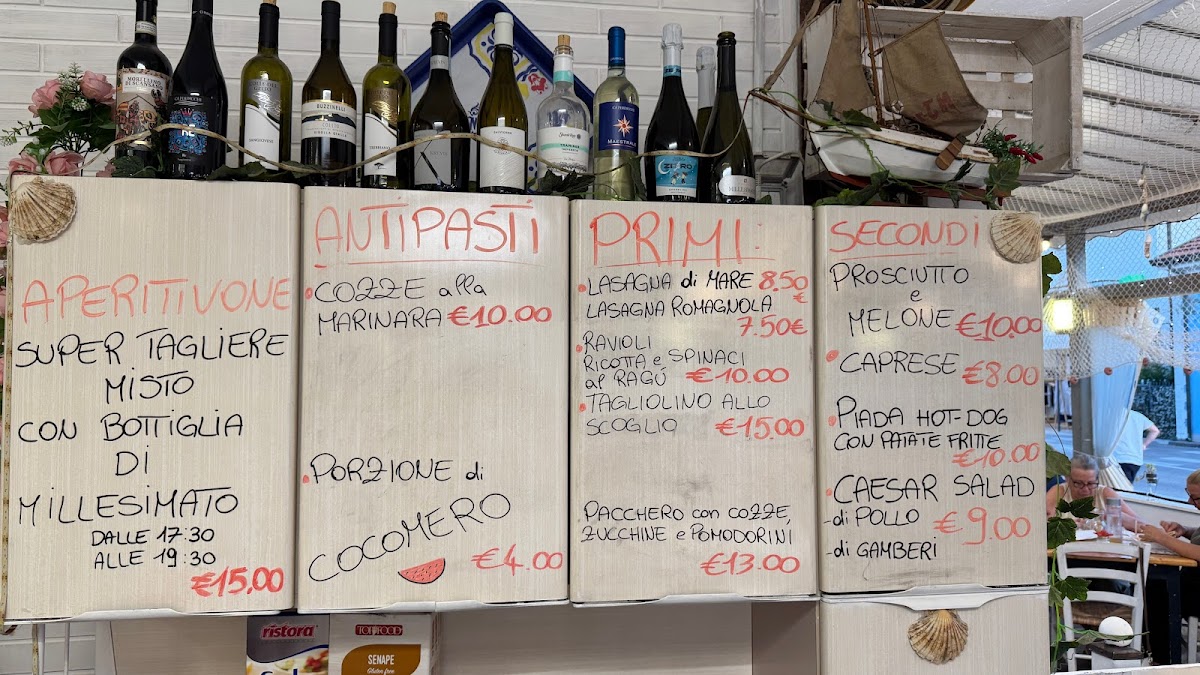 APERITIVONE
SUPER TAGLIERE
MISTO
CON BOTTIGLIA
DI
MILLESIMATO
DALLE 17:30
ALLE 19:30
€15,00
ANTIPASTI
COZZE alla
MARINARA €10.00
PORZIONE di
COCOMERO
€4.00
PRIMI:
LASAGNA di MARE 8.50
€
LASAGNA ROMAGNOLA
7.50€
RAVIOLI
RICOTTA e SPINACI
al RAGÚ €10.00
TAGLIOLINO ALLO
SCOGLIO €15.00
PACCHERO con COZZE,
ZUCCHINE e POMODORINI
€13.00
SECONDI
PROSCIUTTO
e
MELONE €10.00
CAPRESE €8.00
PIADA HOT-DOG
CON PATATE FRITTE
€10.00
CAESAR SALAD
-di POLLO €9.00
-di GAMBERI
ristora
TOP FOOD
SENAPE
Gluten free